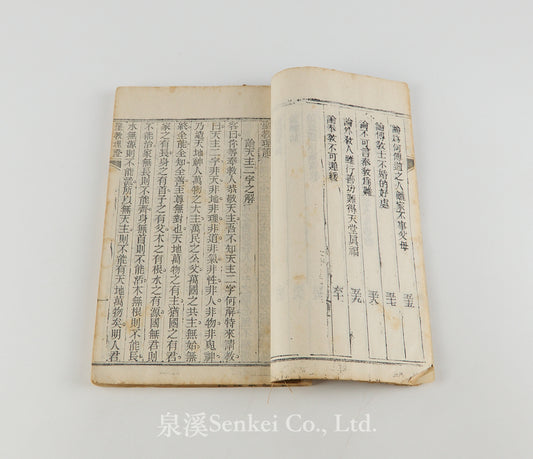 論爲何傳道之人離家不事父母
論傳教士不婚的好處
論不可謂奉教爲難
論外教人雖行善功難得天堂眞福
論奉教不可遲緩 六十
聖教理證
論天主二字之解
客曰你等奉教人恭敬天主吾不知天主二字何解特來請教
曰天主二字非天非地非理非道非氣非性非人非物非鬼神
乃造天地神人萬物之大主萬民之公父萬國之共主無始無
終全能全知全善至尊無對也天地萬物之有主猶國之有君
家之有長身之有首子之有父木之有根水之有源國無君則
不能治家無長則不能齊身無首則不能活木無根則不能長
水無源則不能流所以無天主則不能有天地萬物矣明人君
聖教理證
泉溪Senkei Co., Ltd.